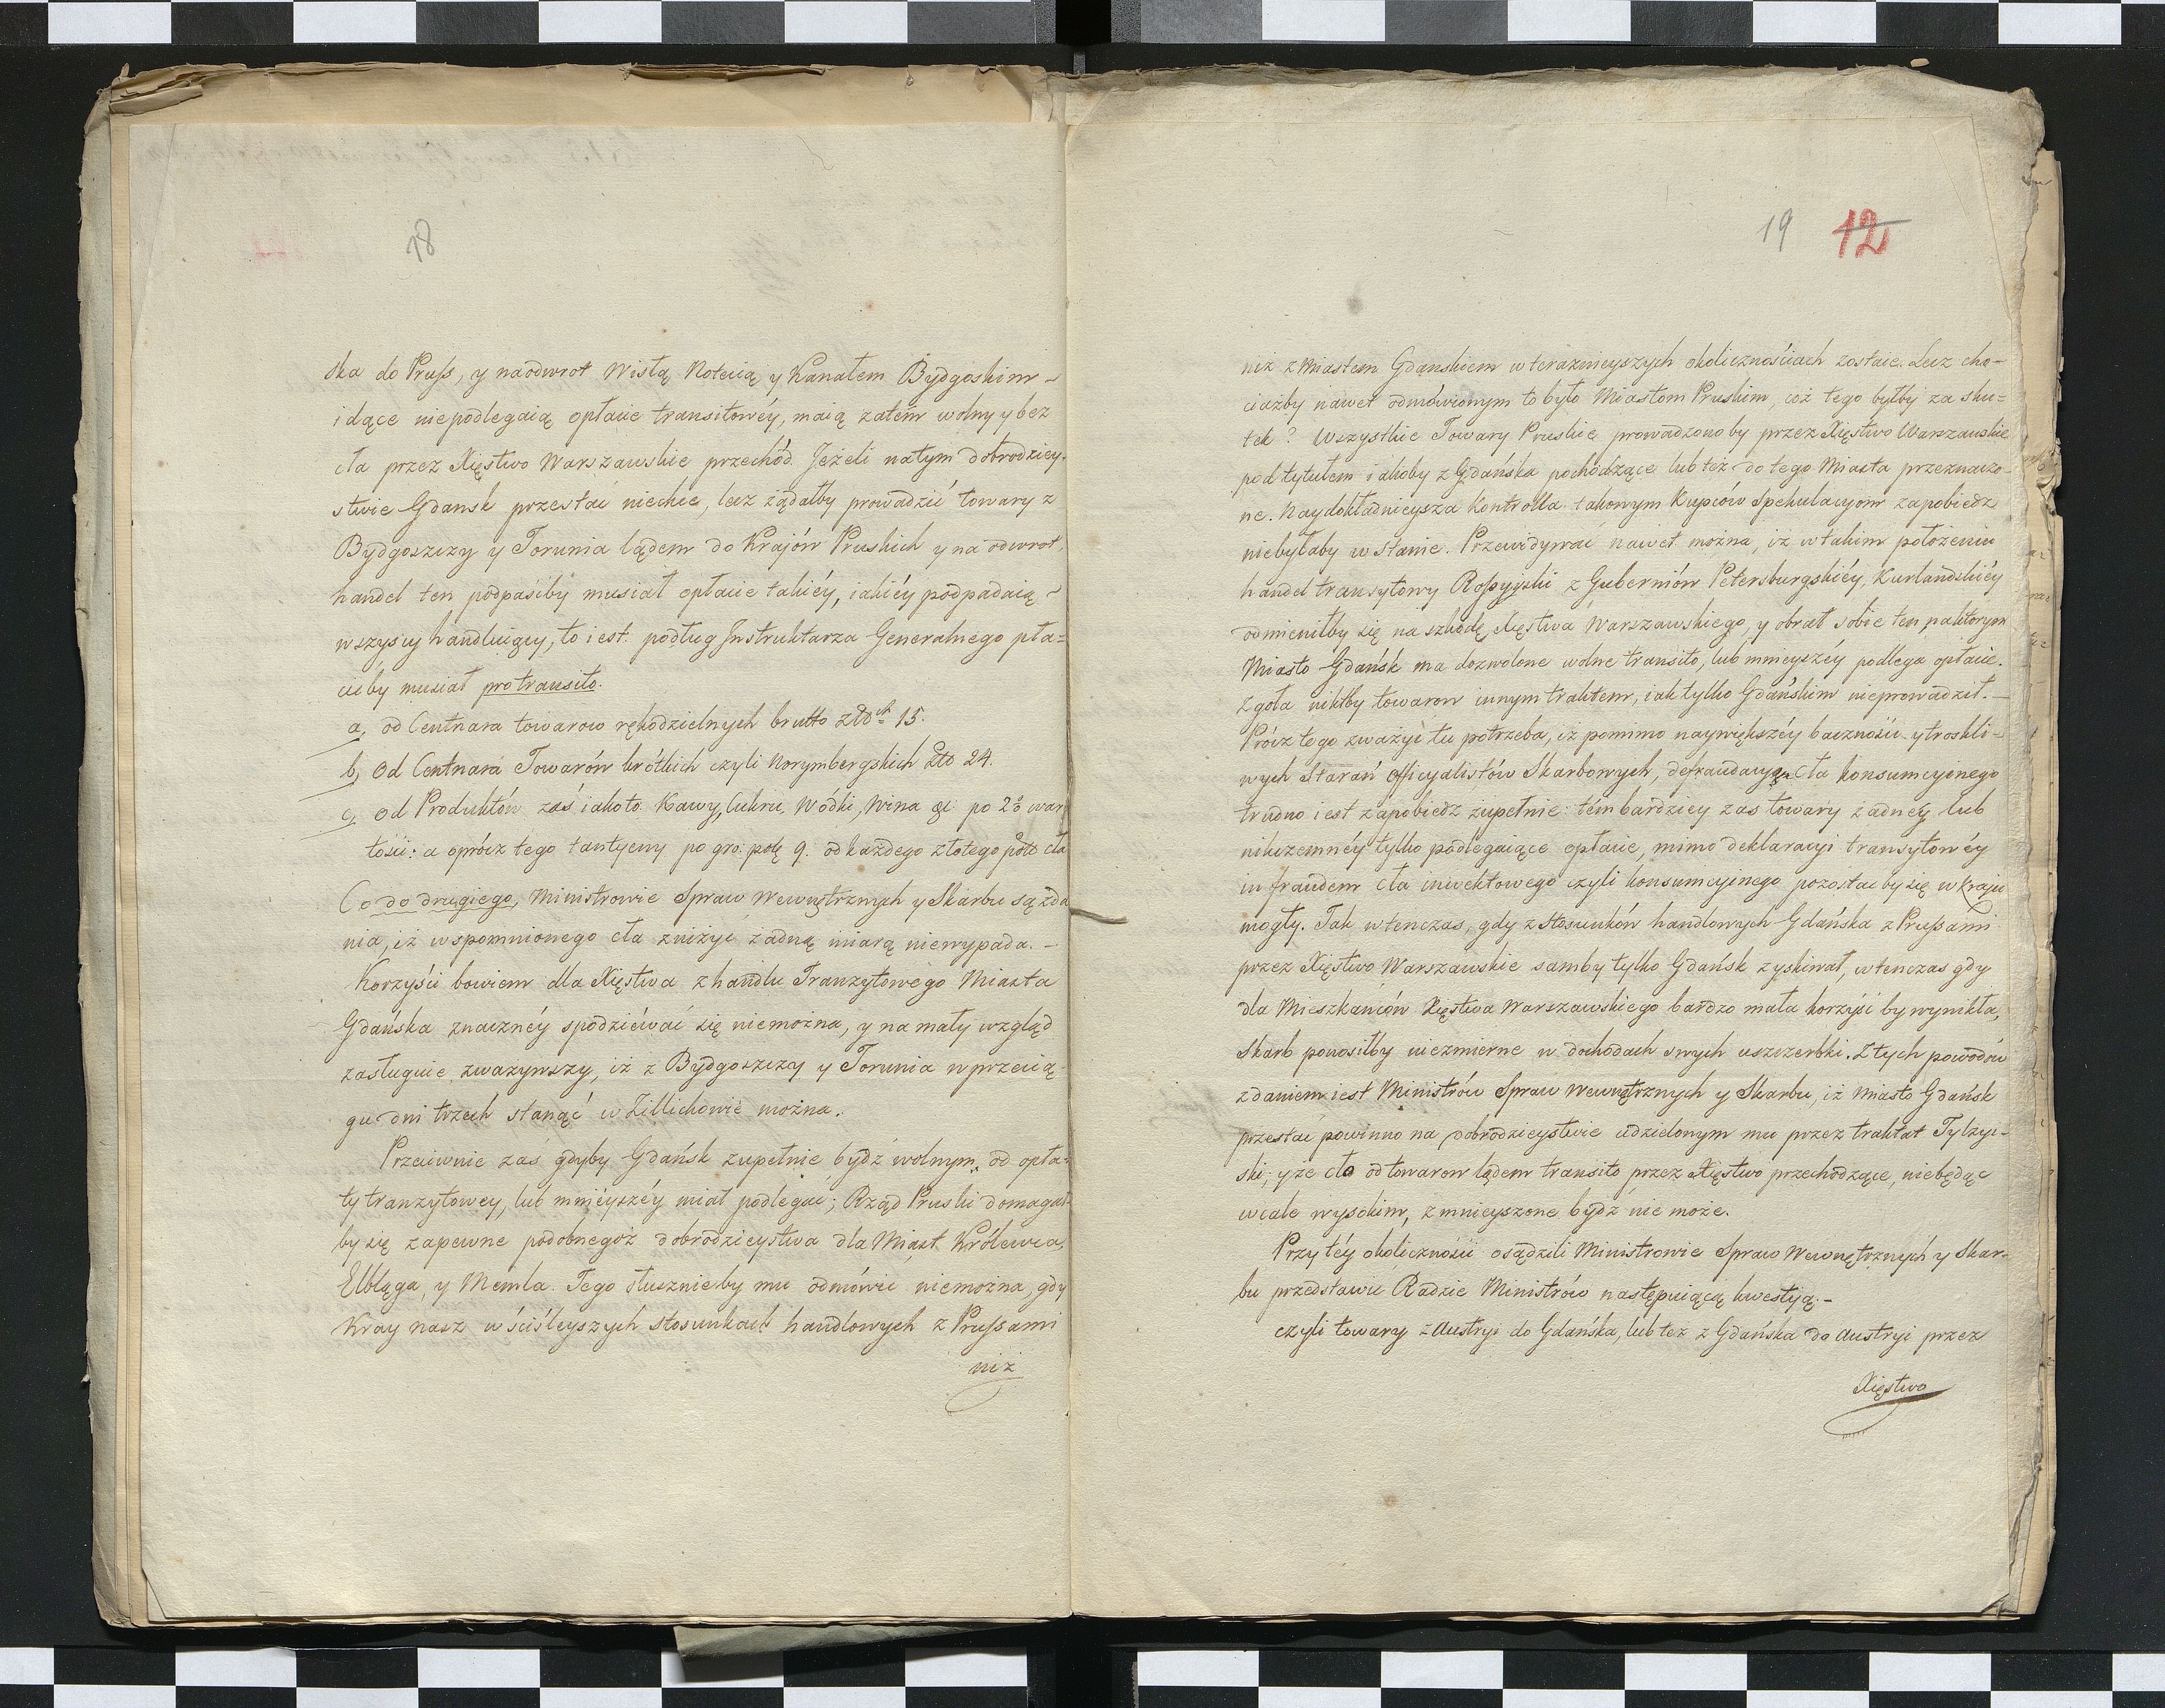 18
ska do Pruss, y naodwrot Wisłą Notecią y Kanałem Bydgoskim –
idące niepodlegaią opłacie transitowéy, maią zatém wolny y bez
cła przez Xięstwo Warszawskie przechód. Jeżeli natym dobrodziey-
stwie Gdansk przestać niechce, lecz żądałby prowadzić towary z
Bydgoszczy y Torunia lądem do Krajów Pruskich y na odwrot,
handel ten podpaśćby musiał opłacie takiéy, iakiéy podpadaią –
wszyscy handluiący, to iest: podług Instruktarza Generalnego pła=
cićby musiał pro transito.
a, od Centnara towarow rękodzielnych brutto Złotch 15.
b, Od Centnara Towarów krótkich czyli Norymbergskich Zło 24.
c, Od Produktów zaś iakoto Kawy, Cukru, Wódki, Wina &c: po 2% war
tości: a oprócz tego tantyemy po gro: pol: 9. od każdego złotego polo cła
Co do drugiego, Ministrowie Spraw Wewnętrznych y Skarbu są zda
nia, iż wspomnionego cła zniżyć żadną miarą niewypada. –
Korzyści bowiem dla Xięstwa z handlu Tranzytowego Miasta
Gdańska znacznéy spodziéwać się niemożna, y na mały wzgląd
zasługuie, zwazywszy, iż z Bydgoszczy y Torunia wprzecią-
gu dni trzech stanąć w Zillichowie można.
Przeciwnie zaś gdyby Gdańsk zupełnie bydź wolnym, od opła-
ty tranzytowey, lub mniéyszéy miał podlegać; Rząd Pruski domagał-
by się zapewne podobnegoż dobrodzieystwa dla Miast Królewca,
Elbląga, y Memla. Tego słusznieby mu odmówić niemożna, gdy
Kray nasz w ściśleyszych stosunkach handlowych z Prussami
niż
19 12
niż z Miastem Gdanskiem w terazniéyszych okolicznościach zostaie. Lecz cho-
ciażby nawet odmówionym to było Miastom Pruskim, cóż tego byłby za sku=
tek? Wszystkie Towary Pruskie prowadzono by przez Xięstwo Warszawskie
pod tytułem iakoby z Gdańska pochodzące lub też do tego Miasta przeznaczo-
ne. Naydokładnieysza Kontrolla takowym Kupców Spekulacyom zapobiedz
niebyłaby w Stanie. Przewidywać nawet można, iż w takim położeniu
handel transytowy Rossyyski z Guberniów Petersburgskiéy, Kurlandskiéy
odmieniłby się na szkodę Xięstwa Warszawskiego, y obrał sobie ten, naktorym
Miasto Gdańsk ma dozwolone wolne transito, lub mnieyszéy podlega opłacie.
Zgoła niktby towarow innym traktem, iak tylko Gdańskim nieprowadził. –
Prócz tego zważyć tu potrzeba, iż pomimo naywiększéy baczności y troskli-
wych Starań Officyalistów Skarbowych, defraudacyą Cła konsumcyinego
trudno iest zapobiedz zupełnie: tém bardziey zas towary żadnéy lub
nikczemnéy tylko podlegaiące opłacie, mimo deklaracyi transytowéy
in fraudem cła inwektowego czyli konsumcyinego pozostać by się w kraju
mogły. Tak wtenczas, gdy z stosunków handlowych Gdańska z Prussami
przez Xięstwo Warszawskie samby tylko Gdańsk zyskiwał, wtenczas gdy
dla Mieszkańców Xięstwa Warszawskiego bardzo mała korzyść by wynikła,
Skarb ponosiłby niezmierne w dochodach swych uszczerbki. Z tych powodów
zdaniem iest Ministrów Spraw Wewnętrznych y Skarbu, iż Miasto Gdańsk
przestać powinno na dobrodzieystwie udzielonym mu przez traktat Tylzyc-
ski; y że cło od towarow lądem transito przez Xięstwo przechodzące, niebędąc
wcale wysokim, zmnieyszone bydź nie może.
Przy téy okoliczności osądzili Ministrowie Spraw Wewnętrznych y Skar-
bu przedstawić Radzie Ministrów następuiącą kwestyą. –
czyli towary z Austryi do Gdańska, lub też z Gdańska do Austryi przez
Xięstwo